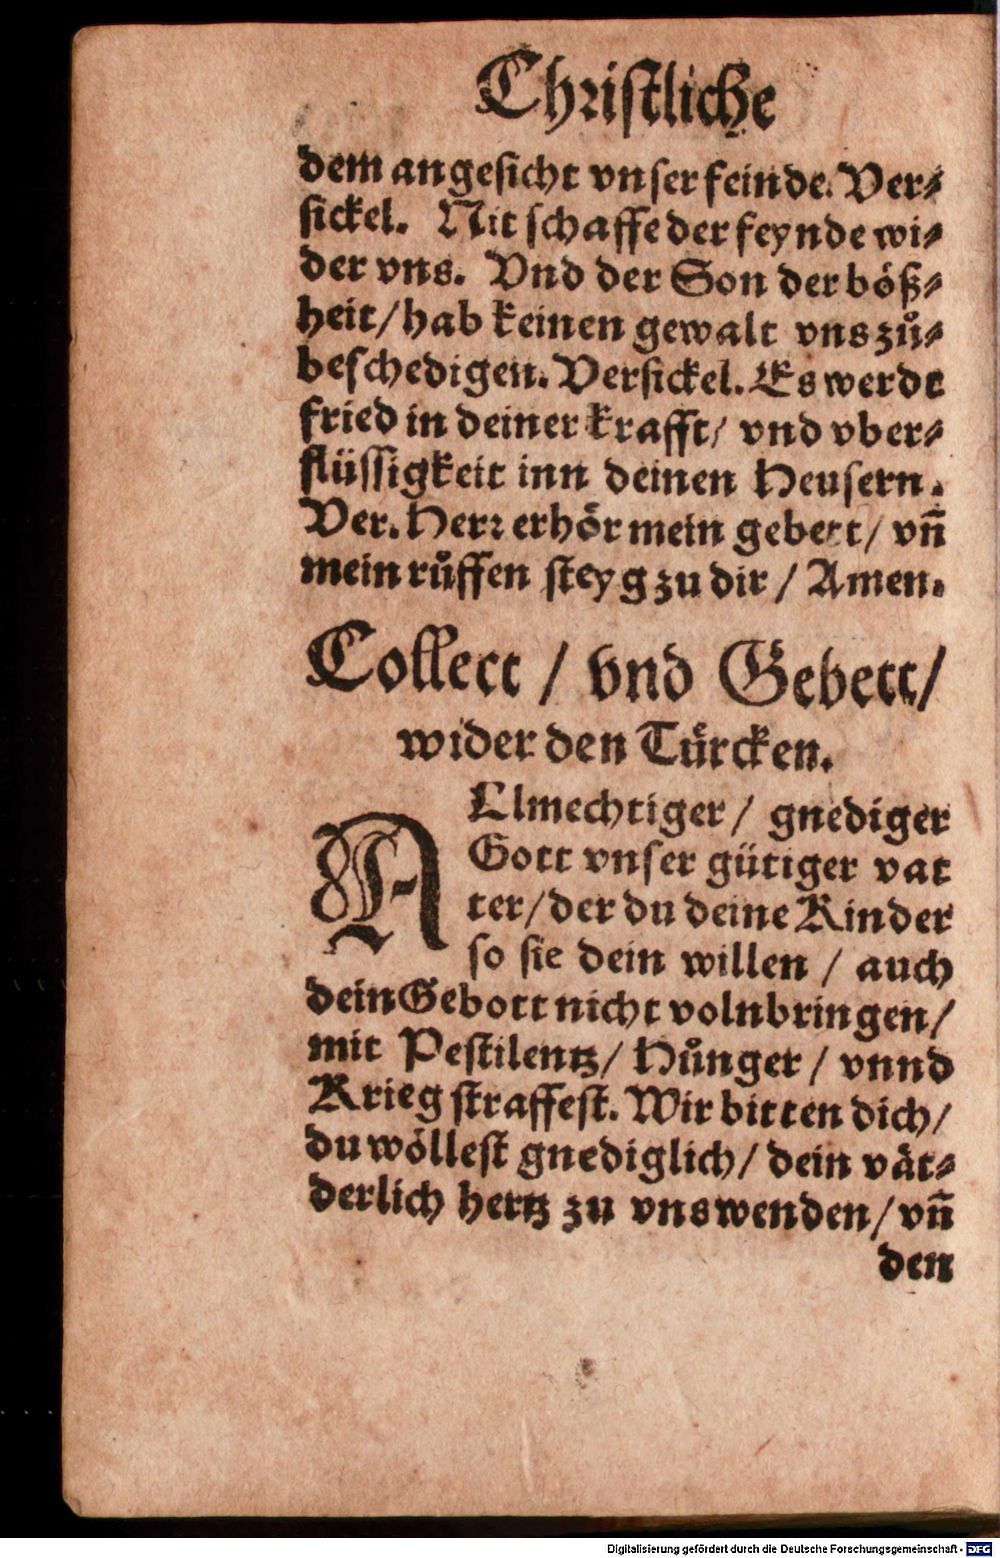 Christliche
dem angesicht vnser feinde. Ver⸗
sickel. Nit schaffe der feynde wi⸗
der vns. Vnd der Son der bößs⸗
heit/ hab keinen gewalt vns zů⸗
beschedigen. Versickel. Es werde
fried in deiner krafft/ vnd vber⸗
flüssigkeit inn deinen Heusern.
Ver. Herr erhör mein gebett/ vñ
mein růffen steyg zu dir / Amen.
Collect / vnd Gebett/
wider den Türcken.
ALlmechtiger / gnediger
Gott vnser gütiger vat
ter/ der du deine Kinder
so sie dein willen / auch
dein Gebott nicht volnbringen/
mit Pestilentz/ Hůnger / vnnd
Krieg straffest. Wir bitten dich/
du wöllest gnediglich/ dein vät⸗
derlich hertz zu vns wenden/ vñ
den
Digitalisierung gefördert durch die Deutsche Forschungsgemeinschaft - DFG